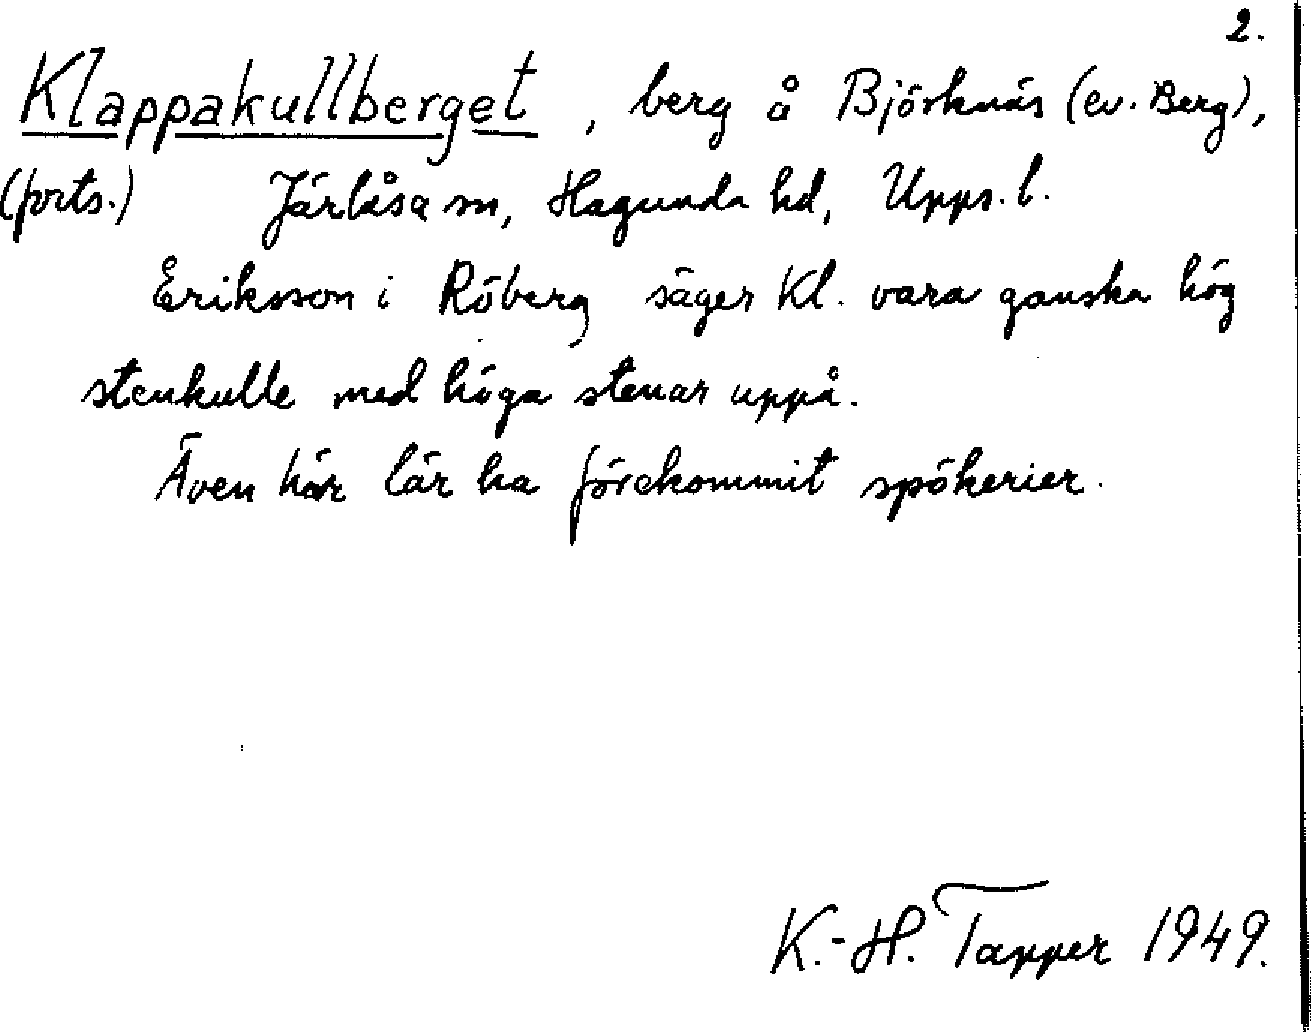 2.
Klappakullberget, berg å Björknäs (ev. Berg),
(forts.) Järlåsa sn, Hagunda hd, Upps. l.
Eriksson i Röberg säger Kl. vara ganska hög
stenkulle med höga stenar uppå.
Även här lär ha förekommit spökerier.
K.-H. Tapper 1949.